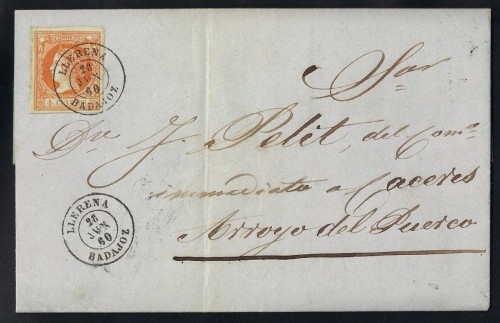 LLERENA
26
JUN
60
BADAJOZ
Sor
Dn J. Petit, del Como
inmediato a Caceres
Arroyo del Puerco
LLERENA
26
JUN
60
BADAJOZ